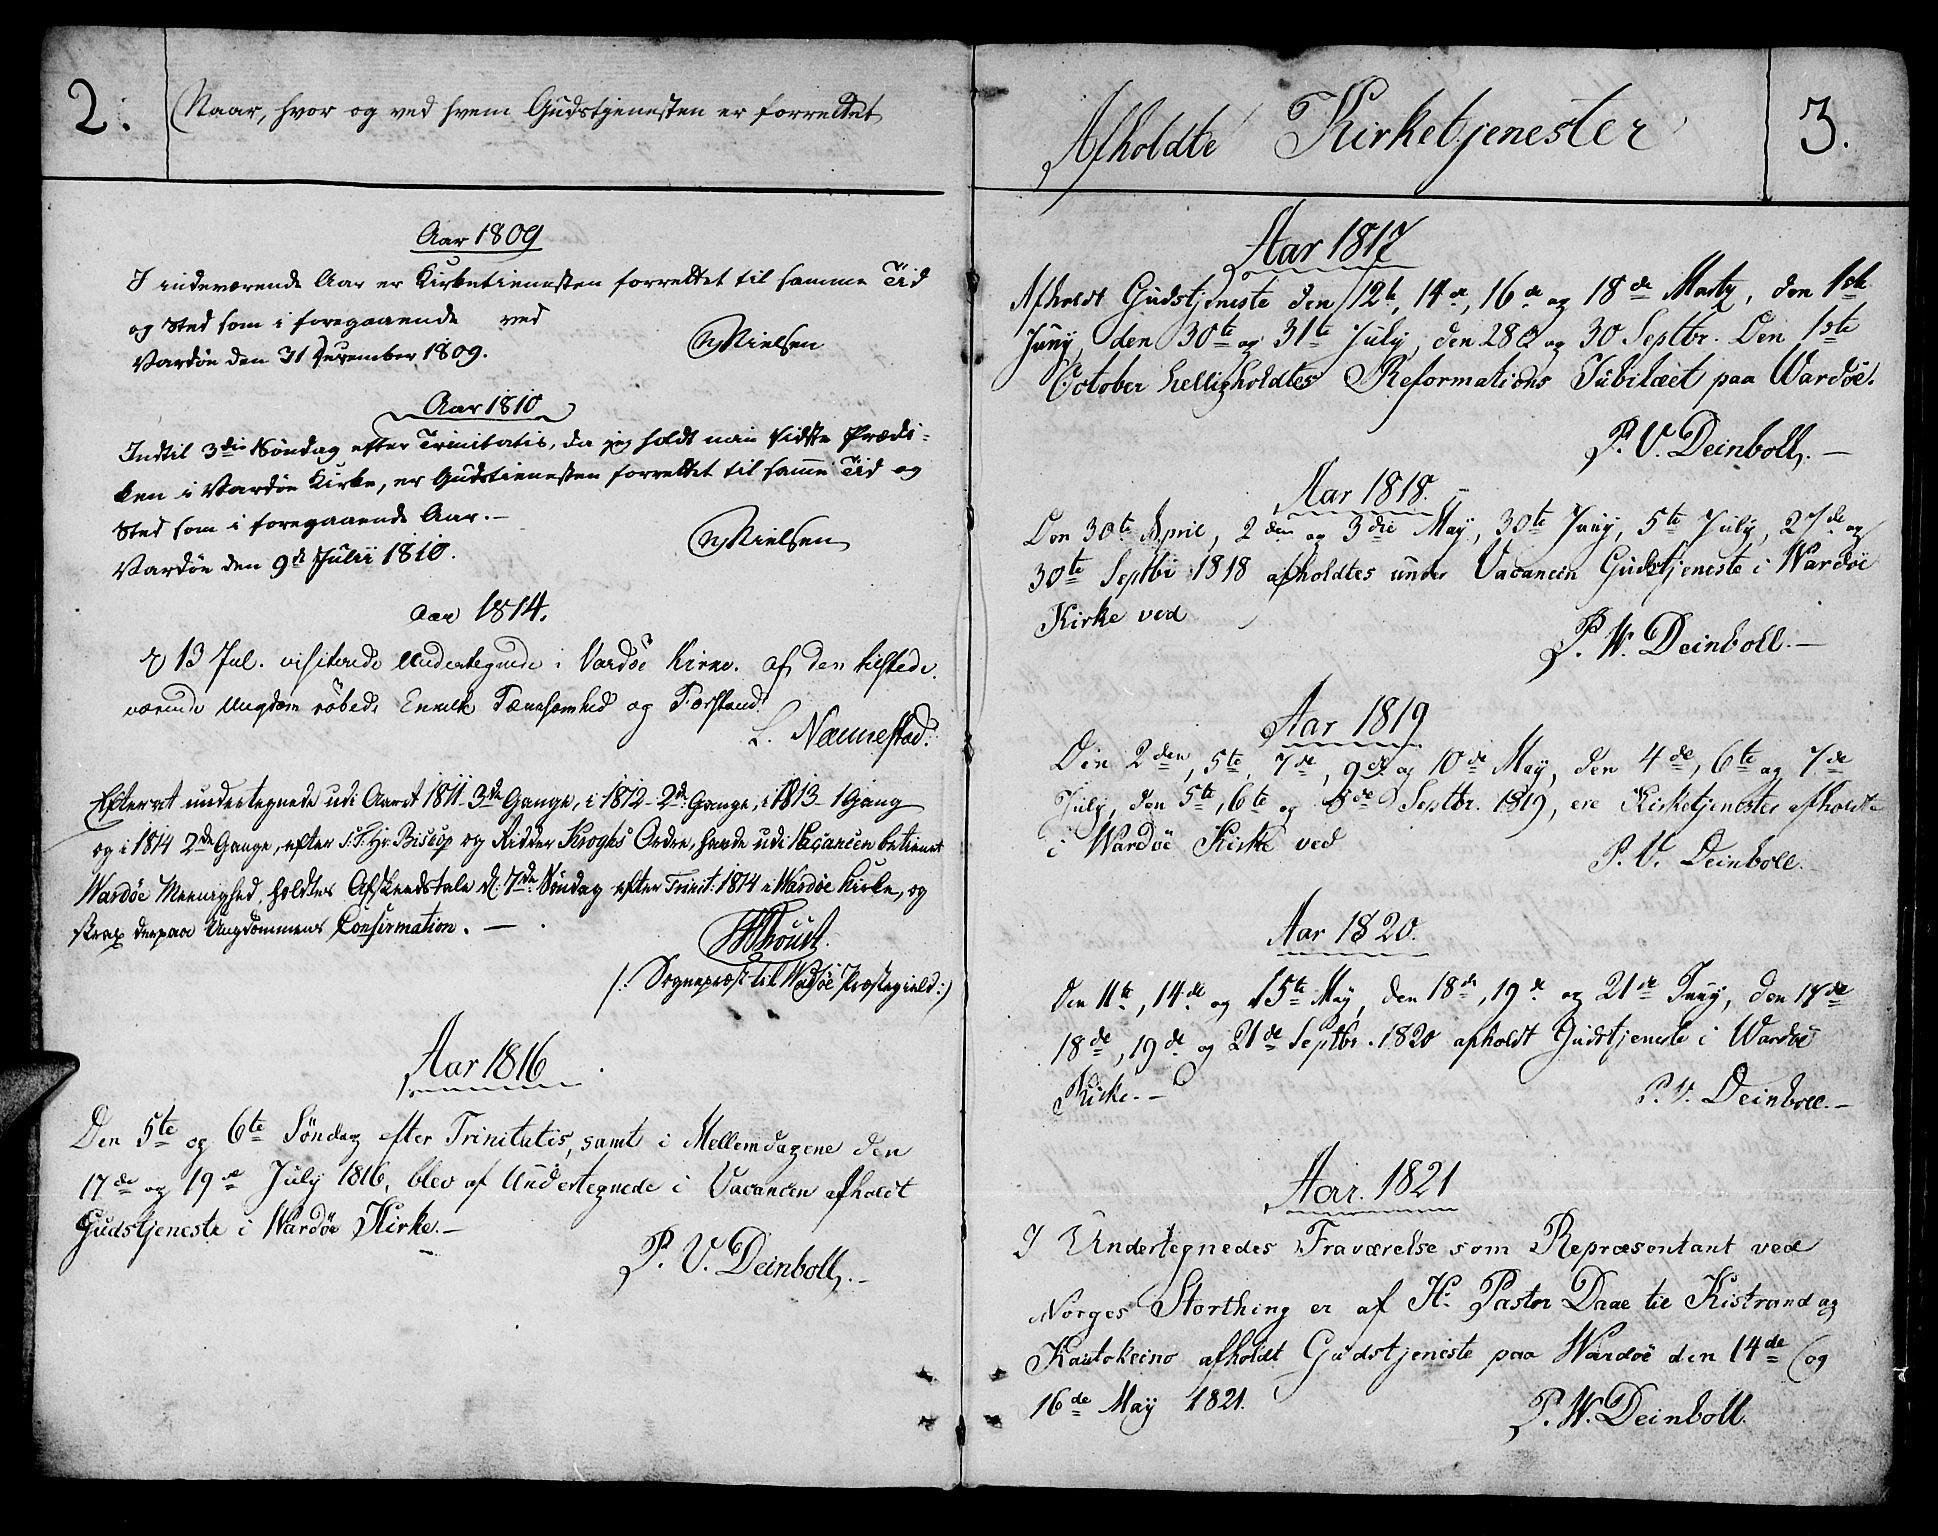 2.
Naar, hvor og ved hvem Gudstjenesten er forrettet
Aar 1809
I indeværende Aar er Kirketienesten forrettet til samme Tid
og Sted som i foregaaende ved
Vardøe den 31 December 1809.
Nielsen
Aar 1810
Indtil 3die Søndag efter Trinitatis, da jeg holdt min sidste Prædi-
ken i Vardøe Kirke, er Gudstienesten forrettet til samme Tid og
Sted som i foregaaende Aar.—
Vardøe den 9de Julii 1810.
Nielsen
Aar 1814.
13 Jul. visiterede Undertegnede i Vardøe Kirke. af den tilstede
værende Ungdom röbede Enkelte Tænksomhed og Forstand.
Efterat undertegnede udi Aaret 1811 3de Gange, i 1812 2de Gange, i 1813 1 Gang
og i 1814 2de Gange, efter Hr. Biscop og Ridder Kroghs Ordre, havde udi Vacancen betient
Wardøe Meenighed, holdtes Afskeedstale d: 7de Søndag efter Trinit: 1814 i Wardøe Kirke, og
strax derpaa Ungdommens Confirmation. —
(: Sognepræst til Wadsøe Præstegield:)
Aar 1816
Den 5te og 6te Søndag efter Trinitatis, samt i Mellemdagene den
17de og 19de July 1816, blev af Undertegnede i Vacancen afholdt
Gudstjeneste i Wardøe Kirke.—
P. V. Deinboll.—
Afholdte Kirketjenester
3.
Aar 1817
Afholdt Gudstjeneste den 12te, 14de, 16de og 18de Marty, den 1ste
Juny, den 30te og 31te July, den 28de og 30 Septbr. Den 1ste
October helligholdtes Reformations Jubilæet paa Wardøe.
P. V. Deinboll.—
Aar 1818.
Den 30te April, 2den og 3die May, 30te Juny, 5te July, 27de og
30te Septbr 1818 afholdtes under Vacancen Gudstjeneste i Wardøe
Kirke ved
P. W. Deinboll.—
Aar 1819
Den 2den, 5te, 7de, 9de og 10de May, den 4de, 6te og 7de
July, den 5te, 6te og 8de Septbr. 1819, ere Kirketjenester afholdte
i Wardøe Kirke ved
P. V. Deinboll.
Aar 1820.
Den 11te, 14de og 15te May, den 18de, 19de og 21de Juny, den 17de
18de, 19de og 21de Septbr. 1820 afholdt Gudstjeneste i Wardøe
Kirke.—
P. V. Deinboll.—
Aar. 1821
I Undertegnedes Fraværelse som Repræsentant ved
Norges Storthing er af Hr. Pastor Daae til Kistrand og
Kautokeino afholdt Gudstjeneste paa Wardøe den 14de og
16de May 1821.
P. W. Deinboll